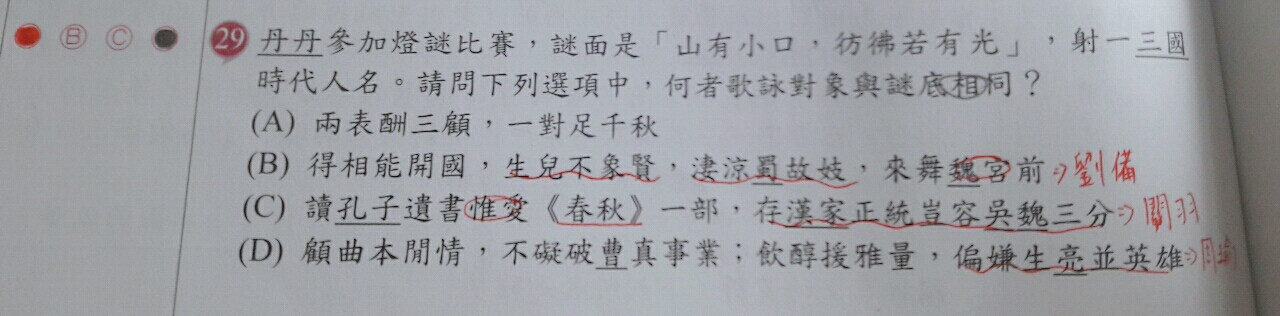 Ⓑ Ⓒ 29 丹丹參加燈謎比賽，謎面是「山有小口，彷彿若有光」，射一三國
時代人名。請問下列選項中，何者歌詠對象與謎底相同？
(A) 兩表酬三顧，一對足千秋
(B) 得相能開國，生兒不象賢，淒涼蜀故妓，來舞魏宮前⇒劉備
(C) 讀孔子遺書惟愛《春秋》一部，存漢家正統豈容吳魏三分⇒關羽
(D) 顧曲本閒情，不礙破曹真事業；飲醇援雅量，偏嫌生亮並英雄⇒周瑜